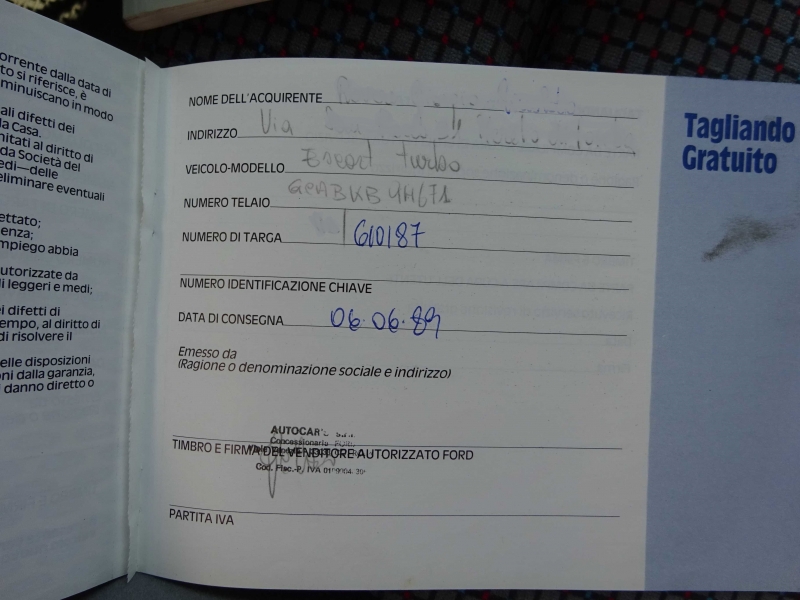 orrente dalla data di
to si riferisce, è
minuiscano in modo
ali difetti dei
la Casa.
mitati al diritto di
da Società del
edi—delle
eliminare eventuali
ettato;
enza;
mpiego abbia
utorizzate da
li leggeri e medi;
ei difetti di
empo, al diritto di
di risolvere il
elle disposizioni
oni dalla garanzia,
i danno diretto o
NOME DELL'ACQUIRENTE
INDIRIZZO Via
VEICOLO-MODELLO Escort turbo
NUMERO TELAIO
NUMERO DI TARGA 610187
NUMERO IDENTIFICAZIONE CHIAVE
DATA DI CONSEGNA 06.06.89
Emesso da
(Ragione o denominazione sociale e indirizzo)
Concessionaria
TIMBRO E FIRMA DEL VENDITORE AUTORIZZATO FORD
Cod. Fisc.-P. IVA
PARTITA IVA
Tagliando
Gratuito